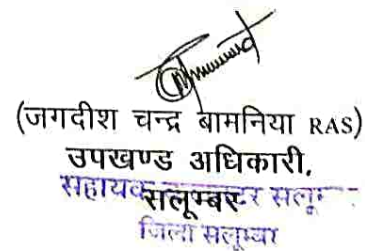 (जगदीश चन्द्र बामनिया RAS)
उपखण्ड अधिकारी,
सहायक
सलूम्बर
जिला सलूम्बर